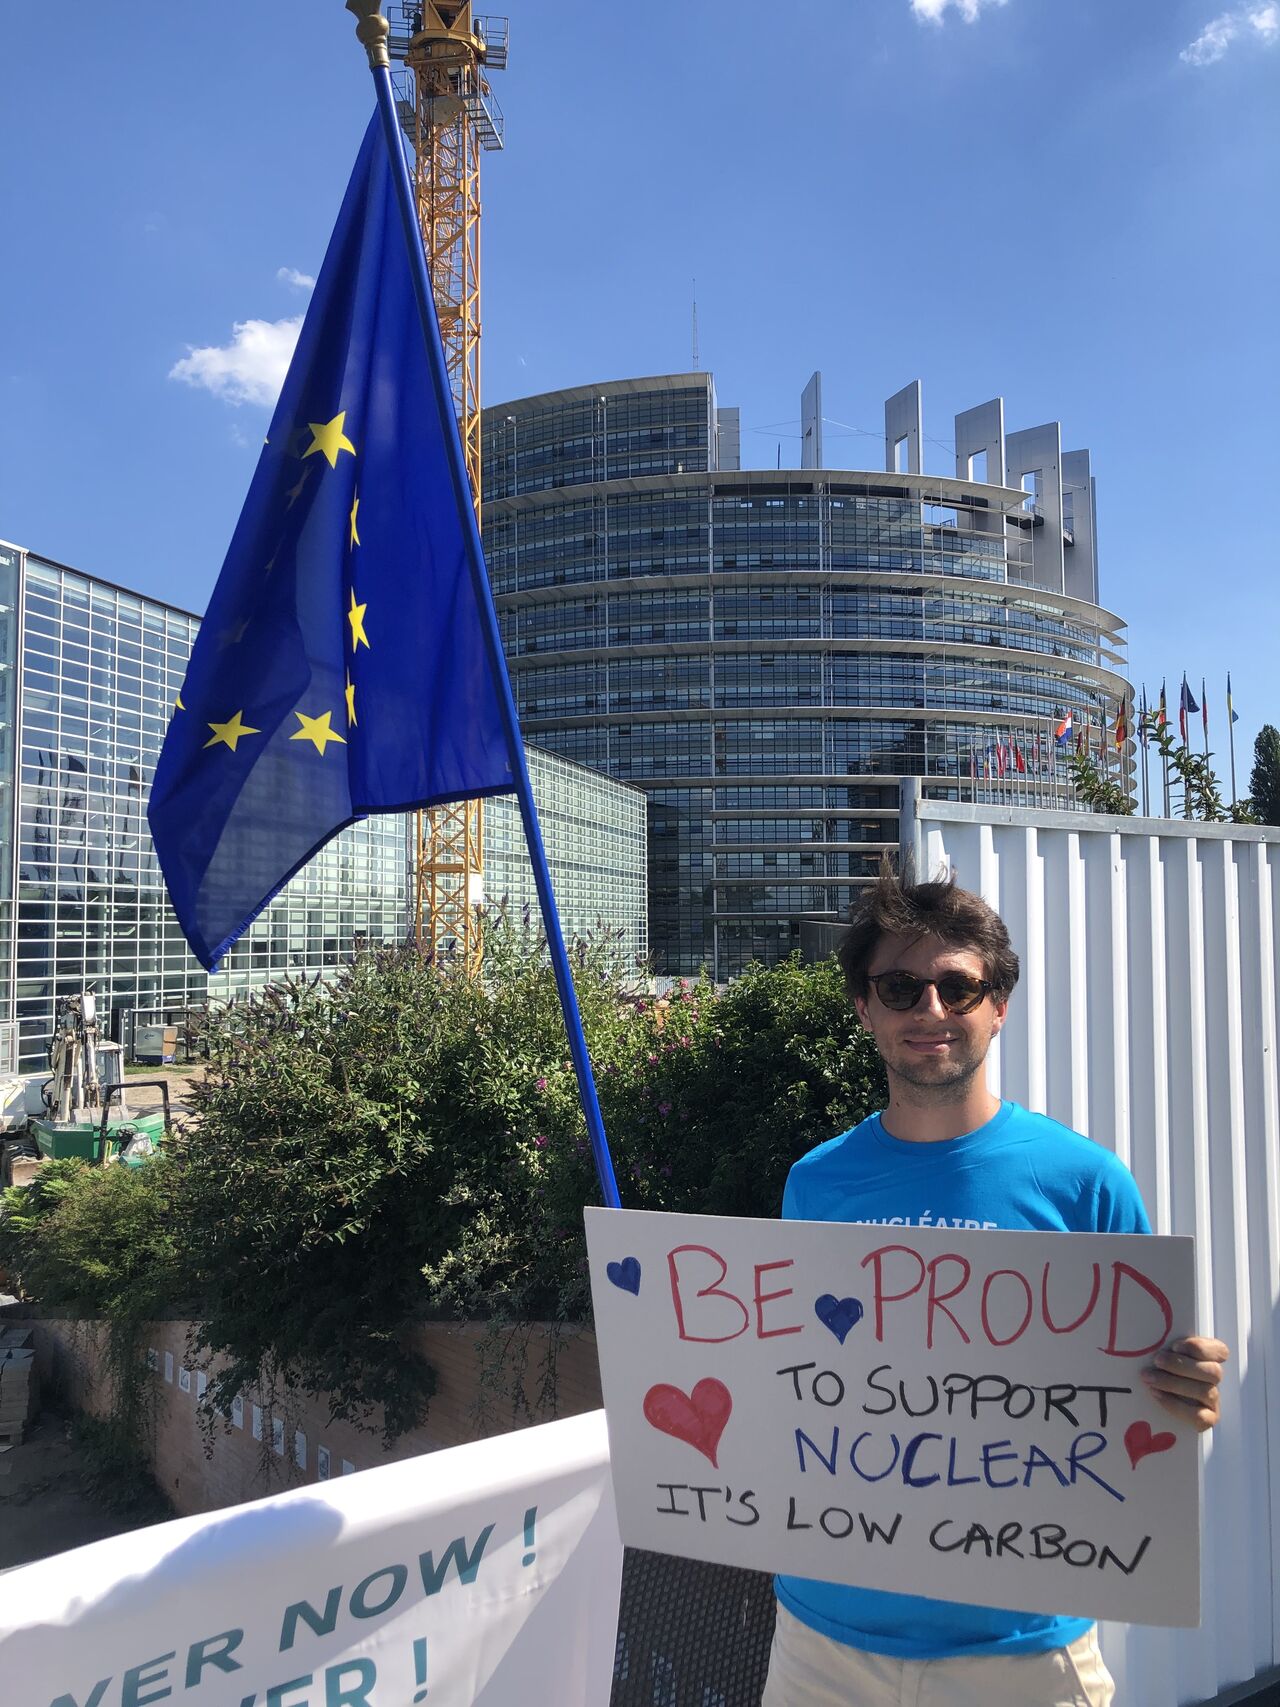 NUCLÉAIRE
BE PROUD
TO SUPPORT
NUCLEAR
IT'S LOW CARBON
NOW !
!